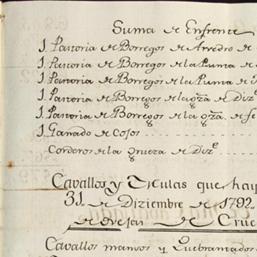 Suma de Enfrente
1. Pastoria de Borregos de Arredro de
1. Pastoria de Borregos de la Puma de
1. Pastoria de Borregos de la Puma de
1. Pastoria de Borregos de la qza. de Diz.
1. Pastoria de Borregos de la qza. de fe
1. Ganado de Cojos
Corderos de la queza de Diz.e
Cavallos y Mulas que hay
31 de Diziembre de 1792
de ovejas de Cruc
Cavallos mansos y Quebrantados